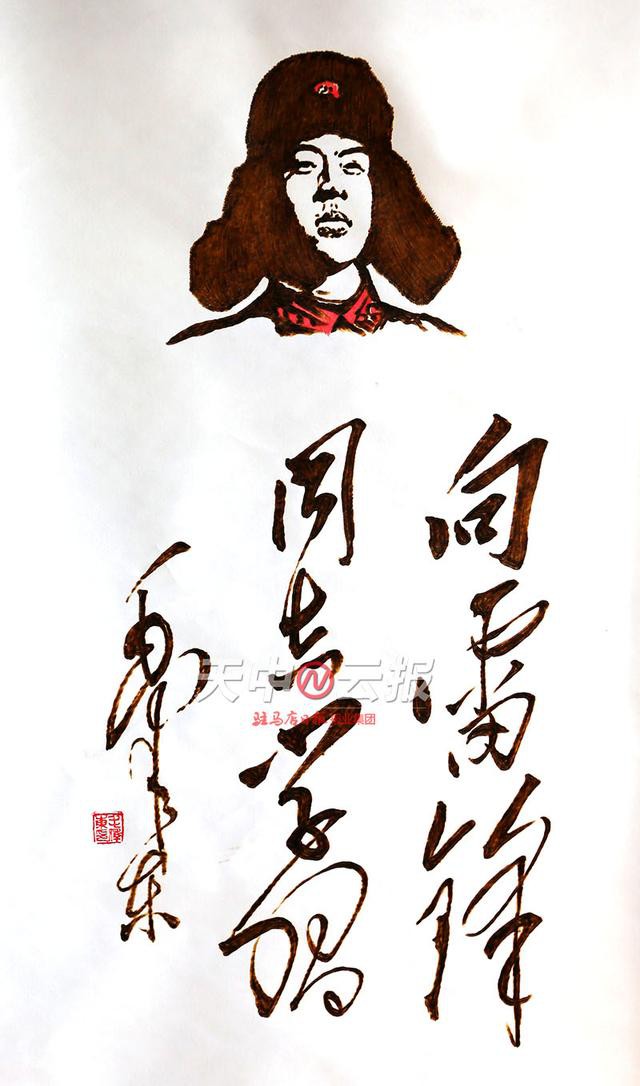 向雷锋
同志学习
毛泽东
天中云报
驻马店日报报业集团